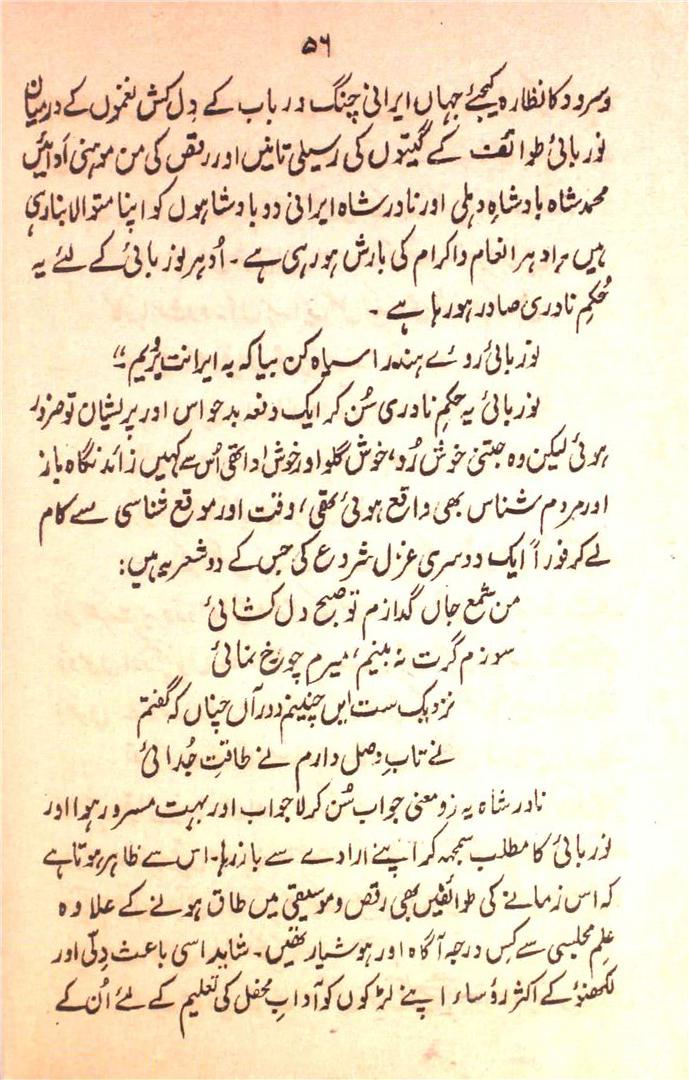 ۵۶
وسرود کا نظارہ کیجئے جہاں ایرانی چنگ و رباب کے دل کش نغموں کے درمیان
نوربائی طوائف کے گیتوں کی رسیلی تانیں اور رقص کی من موہنی ادائیں
محمد شاہ بادشاہِ دہلی اور نادر شاہ ایرانی دو بادشاہوں کو اپنا متوالا بنا رہی
ہیں ہر ادھر انعام واکرام کی بارش ہو رہی ہے ۔ اُدہر نوربائی کے لئے یہ
حُکمِ نادری صادر ہو رہا ہے ۔
نوربائی روے ہند را سیاہ کن بیا کہ بہ ایرانت بریم ؛"
نوربائی یہ حکمِ نادری سُن کر ایک دفعہ بدحواس اور پریشان تو ضرور
ہوئی لیکن وہ جتنی خوش رُو، خوش گلو اور خوش ادا تھی اُس سے کہیں زائد نگاہ باز
اور مردم شناس بھی واقع ہوئی تھی، وقت اور موقع شناسی سے کام
لے کر فوراً ایک دوسری غزل شروع کی جس کے دو شعر یہ ہیں:
من شمع جاں گدازم تو صبح دل کشائی
سوزم گرت نہ بینم، میرم چو رخ نمائی
نزدیک ست ایں چنینم دور آں چناں کہ گفتم
نے تابِ وصل دارم نے طاقتِ جُدائی
نادر شاہ یہ زو معنی جواب سُن کر لاجواب اور بہت مسرور ہوا اور
نوربائی کا مطلب سمجہ کر اپنے ارادے سے باز رہا۔ اس سے ظاہر ہوتا ہے
کہ اس زمانے کی طوائفیں بھی رقص و موسیقی میں طاق ہونے کے علاوہ
علمِ مجلسی سے کس درجہ آگاہ اور ہوشیار تھیں۔ شاید اسی باعث دلّی اور
لکھنؤ کے اکثر رؤساء اپنے لڑکوں کو آدابِ محفل کی تعلیم کے لئے اُن کے